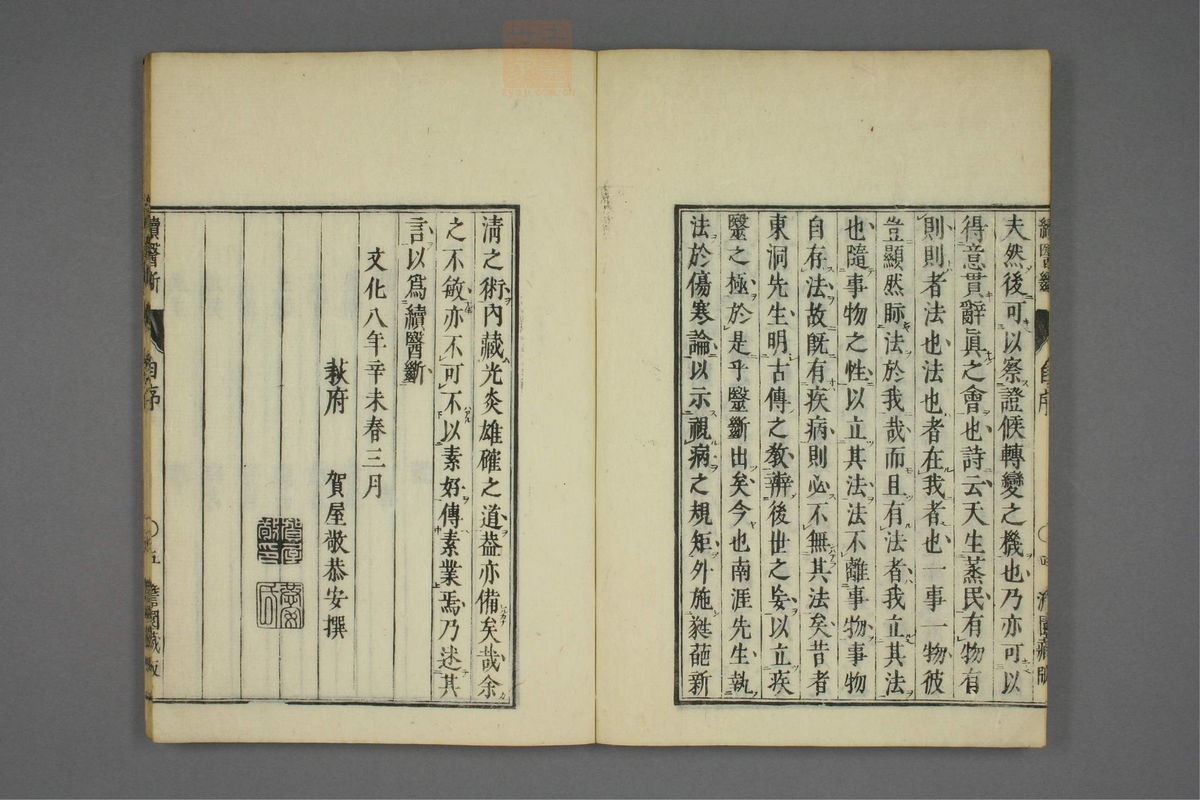 夫然後可以察證候轉變之機也乃亦可以
得意貫辭眞之會也詩云天生蒸民有物有
則則者法也法也者在我者也一事一物彼
豈顯然眎法於我哉而且有法者我立其法
也隨事物之性以立其法法不離事物事物
自存法故既有疾病則必不無其法矣昔者
東洞先生明古傳之教辨後世之妄以立疾
毉之極於是乎毉斷出矣今也南涯先生執
法於傷寒論以示視病之規矩外施毿葩新
清之術內藏光炎雄確之道益亦備矣哉余
之不敏亦不可不以素好傳素業焉乃述其
言以爲續醫斷
文化八年辛未春三月
萩府 賀屋敬恭安撰
續醫斷 自序 五